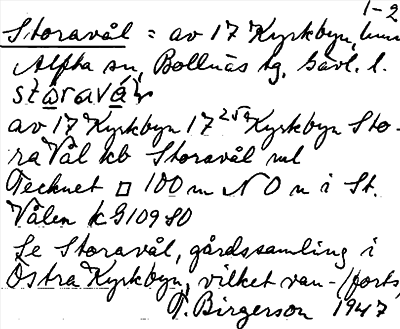 1-2
Storavål = av 17 Kyrkbyn,
Alfta sn, Bollnäs tg, Gävl. l.
staravál
av 17 Kyrkbyn 17 25a Kyrkbyn Sto-
ra Vål kb Storavål ml
Tecknet □ 100 m N O n i St.
Vålen kG109 SO
Se Storavål, gårdssamling i
Östra Kyrkbyn, vilket van- (forts,
T. Birgerson 1947